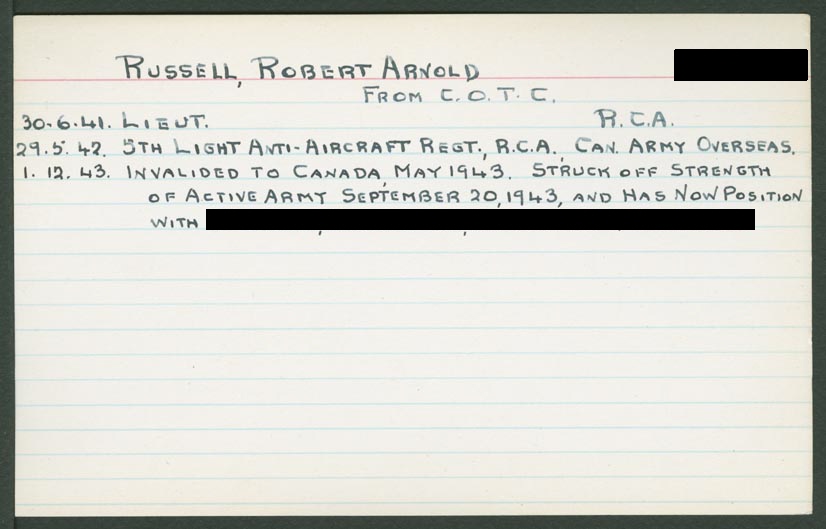 RUSSELL, ROBERT ARNOLD
FROM C.O.T.C.
30.6.41. LIEUT. R.C.A.
29.5.42. 5TH LIGHT ANTI-AIRCRAFT REGT., R.C.A. CAN. ARMY OVERSEAS.
1.12.43. INVALIDED TO CANADA, MAY 1943. STRUCK OFF STRENGTH
OF ACTIVE ARMY SEPTEMBER 20, 1943, AND HAS NOW POSITION
WITH